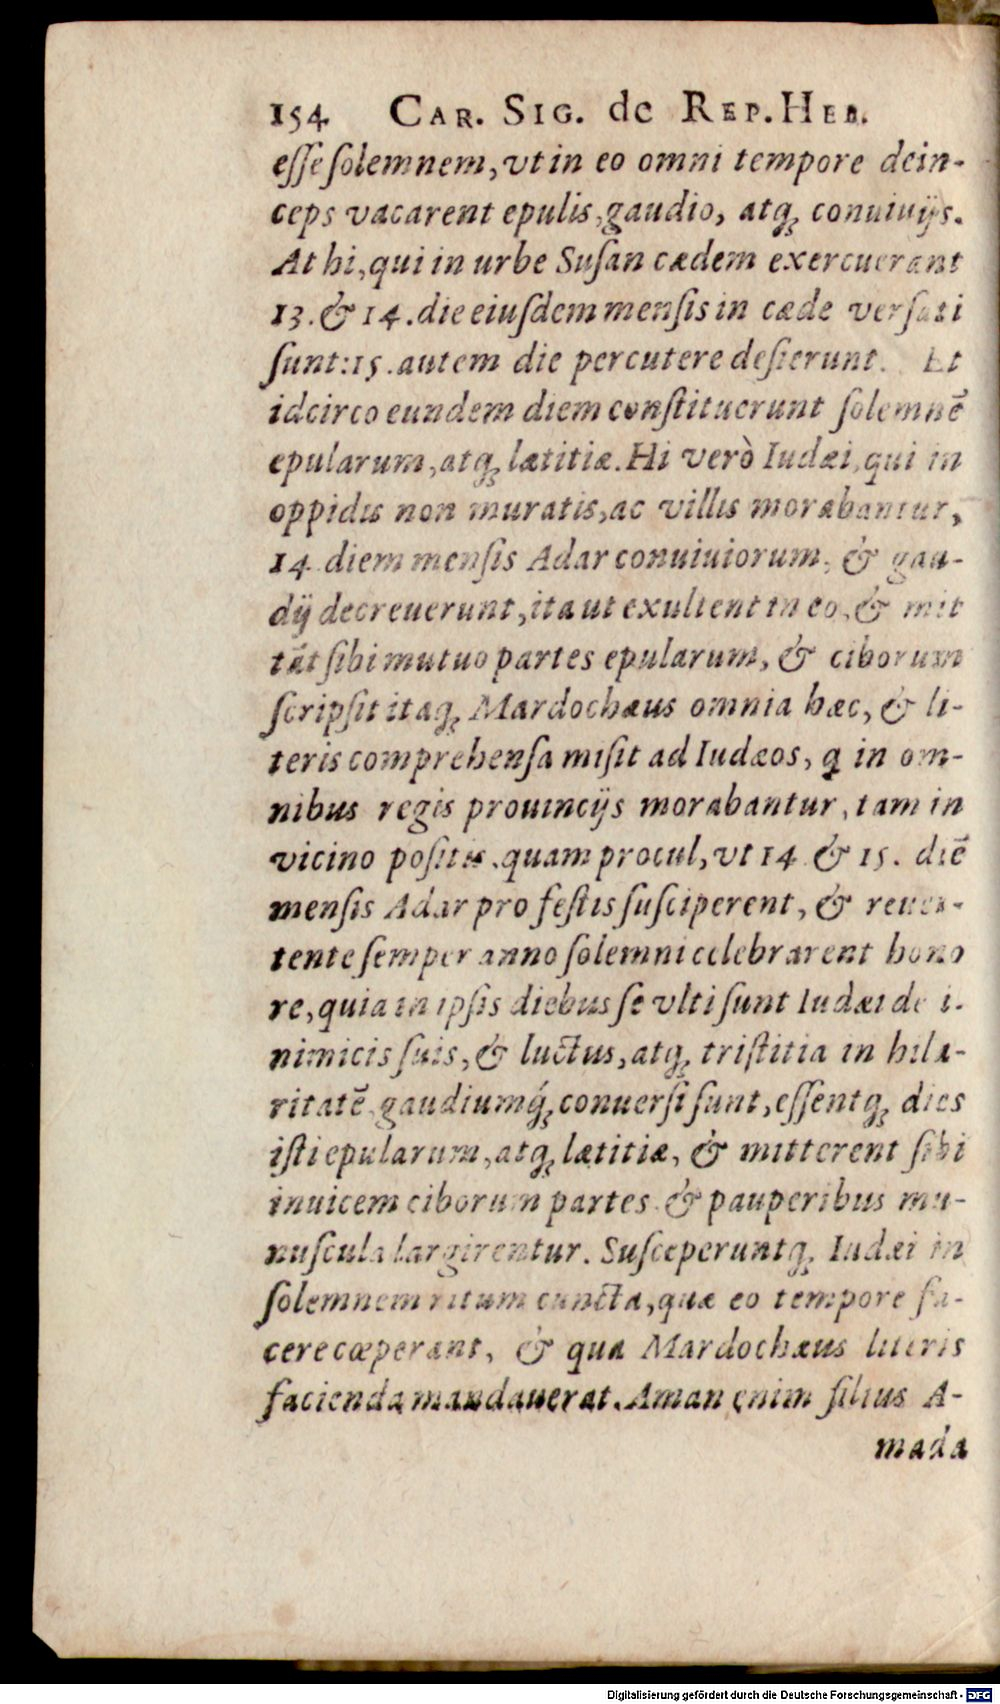 154 CAR. SIG. de REP. HEB.
esse solemnem, vt in eo omni tempore dein-
ceps vacarent epulis, gaudio, atq; conuiuijs.
At hi, qui in urbe Susan cædem exercuerant
13. & 14. die eiusdem mensis in cæde versati
sunt: 15. autem die percutere desierunt. Et
idcirco eundem diem constituerunt solemnē
epularum, atq; lætitiæ. Hi verò Iudæi, qui in
oppidis non muratis, ac villis morabantur,
14 diem mensis Adar conuiuiorum, & gau-
dij decreuerunt, ita ut exultent in eo, & mit
tāt sibi mutuo partes epularum, & ciborum
scripsit itaq; Mardochæus omnia hæc, & li-
teris comprehensa misit ad Iudæos, q in om-
nibus regis prouincijs morabantur, tam in
vicino positis, quam procul, vt 14 & 15. diē
mensis Adar pro festis susciperent, & reuer-
tente semper anno solemni celebrarent hono
re, quia in ipsis diebus se vlti sunt Iudæi de i-
nimicis suis, & luctus, atq; tristitia in hila-
ritatē, gaudiumq́; conuersi sunt, essentq; dies
isti epularum, atq; lætitiæ, & mitterent sibi
inuicem ciborum partes & pauperibus mu-
nuscula largirentur. Susceperuntq; Iudæi in
solemnem ritum cuncta, quæ eo tempore fa-
cere cœperant, & qua Mardochæus literis
facienda mandauerat. Aman enim filius A-
mada
Digitalisierung gefördert durch die Deutsche Forschungsgemeinschaft - DFG